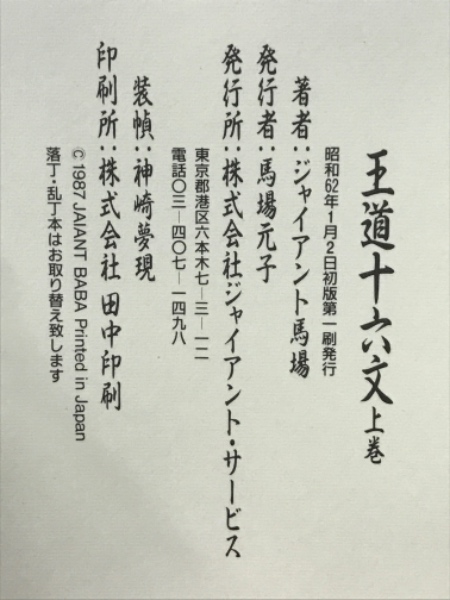 王道十六文上巻
昭和62年1月2日初版第一刷発行
著者:ジャイアント馬場
発行者:馬場元子
発行所:株式会社ジャイアント・サービス
東京都港区六本木七―三―一二
電話〇三―四〇七―一四九八
装幀:神崎夢現
印刷所:株式会社 田中印刷
© 1987 JAIANT BABA Printed in Japan
落丁・乱丁本はお取り替え致します